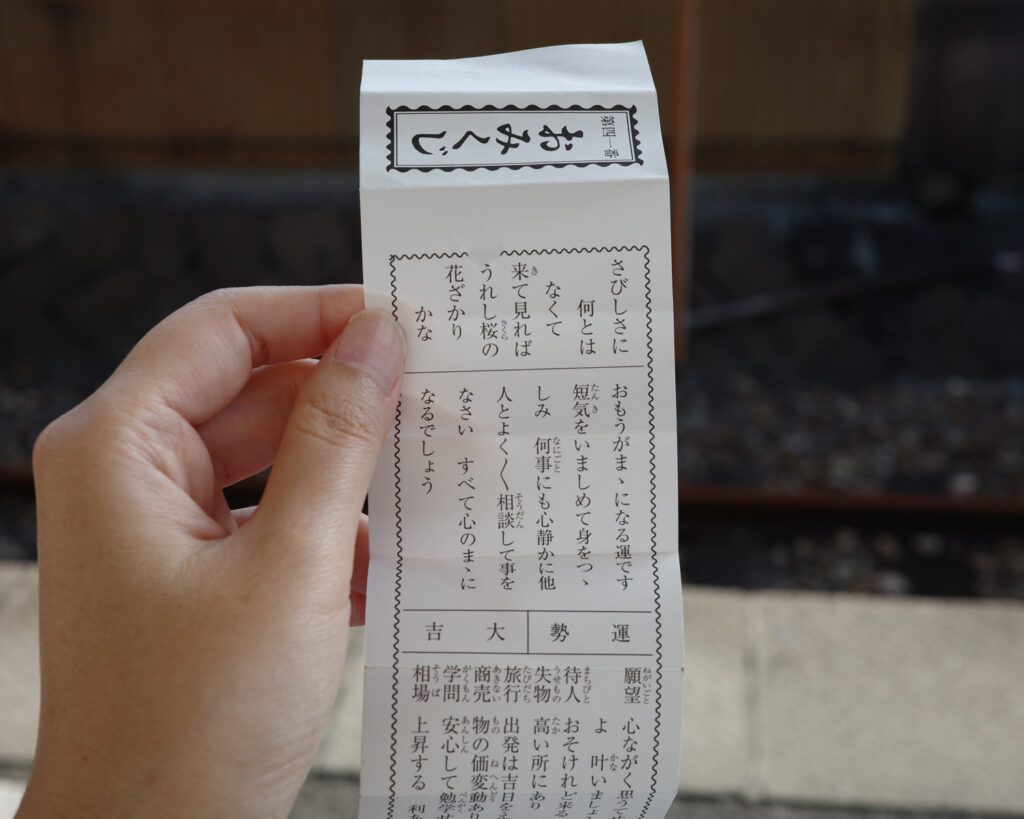 第四一番
おみくじ
さびしさに
何とは
なくて
来て見れば
うれし桜の
花ざかり
かな
おもうがまゝになる運です
短気をいましめて身をつゝ
しみ 何事にも心静かに他
人とよく〳〵相談して事を
なさい すべて心のまゝに
なるでしょう
運勢 大吉
願望 心ながく思うて
よ 叶いましょ
待人 おそけれど来る
失物 高い所にあり
旅行 出発は吉日を
商売 物の価変動あり
学問 安心して勉学せ
相場 上昇する